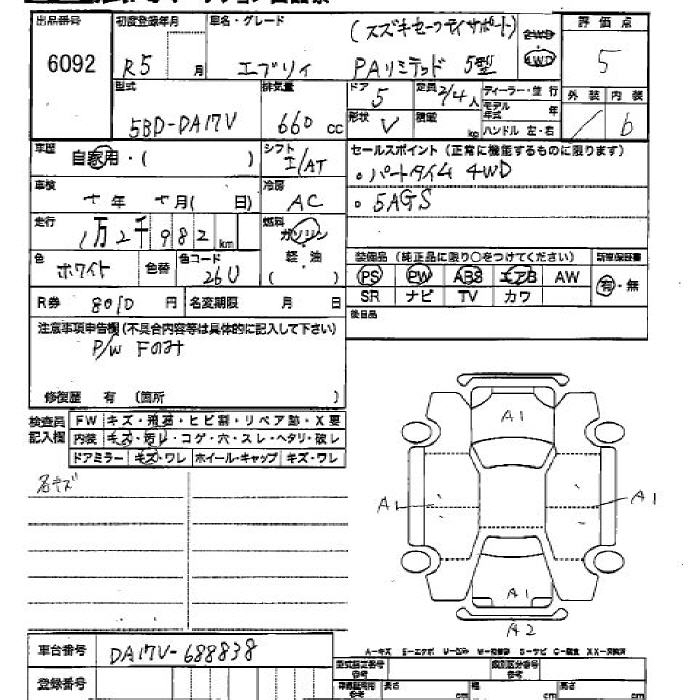 出品番号 初度登録年月 車名・グレード (スズキセーフティサポート) 2WD 評価点
6092 R5 月 エブリイ PAリミテッド 5型 4WD 5
型式 排気量 ドア 5 定員 2/4人 ディーラー・並行 外装 内装
5BD-DA17V 660 cc 形状 V 積載 kg モデル年式 年 ハンドル 左・右 / 6
車歴 自家用・( ) シフト I/AT セールスポイント(正常に機能するものに限ります)
・パートタイム 4WD
車検 七年 七月( 日) 冷房 AC ・5AGS
走行 1万2千982km 燃料 ガソリン
軽・油
( )
色 ホワイト 色替 色コード 26U
装備品(純正品に限り○をつけてください) 新車保証書
PS PW ABS エアB AW 有・無
SR ナビ TV カワ
R券 8010円 名変期限 月 日 後日品
注意事項申告欄(不具合内容等は具体的に記入して下さい)
P/W Fのみ
修復歴 有 (箇所 )
検査員記入欄 FW キズ・飛石・ヒビ割・リペア跡・X要
内装 キズ・汚レ・コゲ・穴・スレ・ヘタリ・破レ
ドアミラー キズ・ワレ ホイール・キャップ キズ・ワレ
名キズ
A1
A1 A1
A1
A2
車台番号 DA17V-688838
A-キズ E-エクボ U-凹み S-サビ C-腐食
登録番号
型式指定番号 参考 類別区分番号 参考
長さ cm 幅 cm 高さ cm